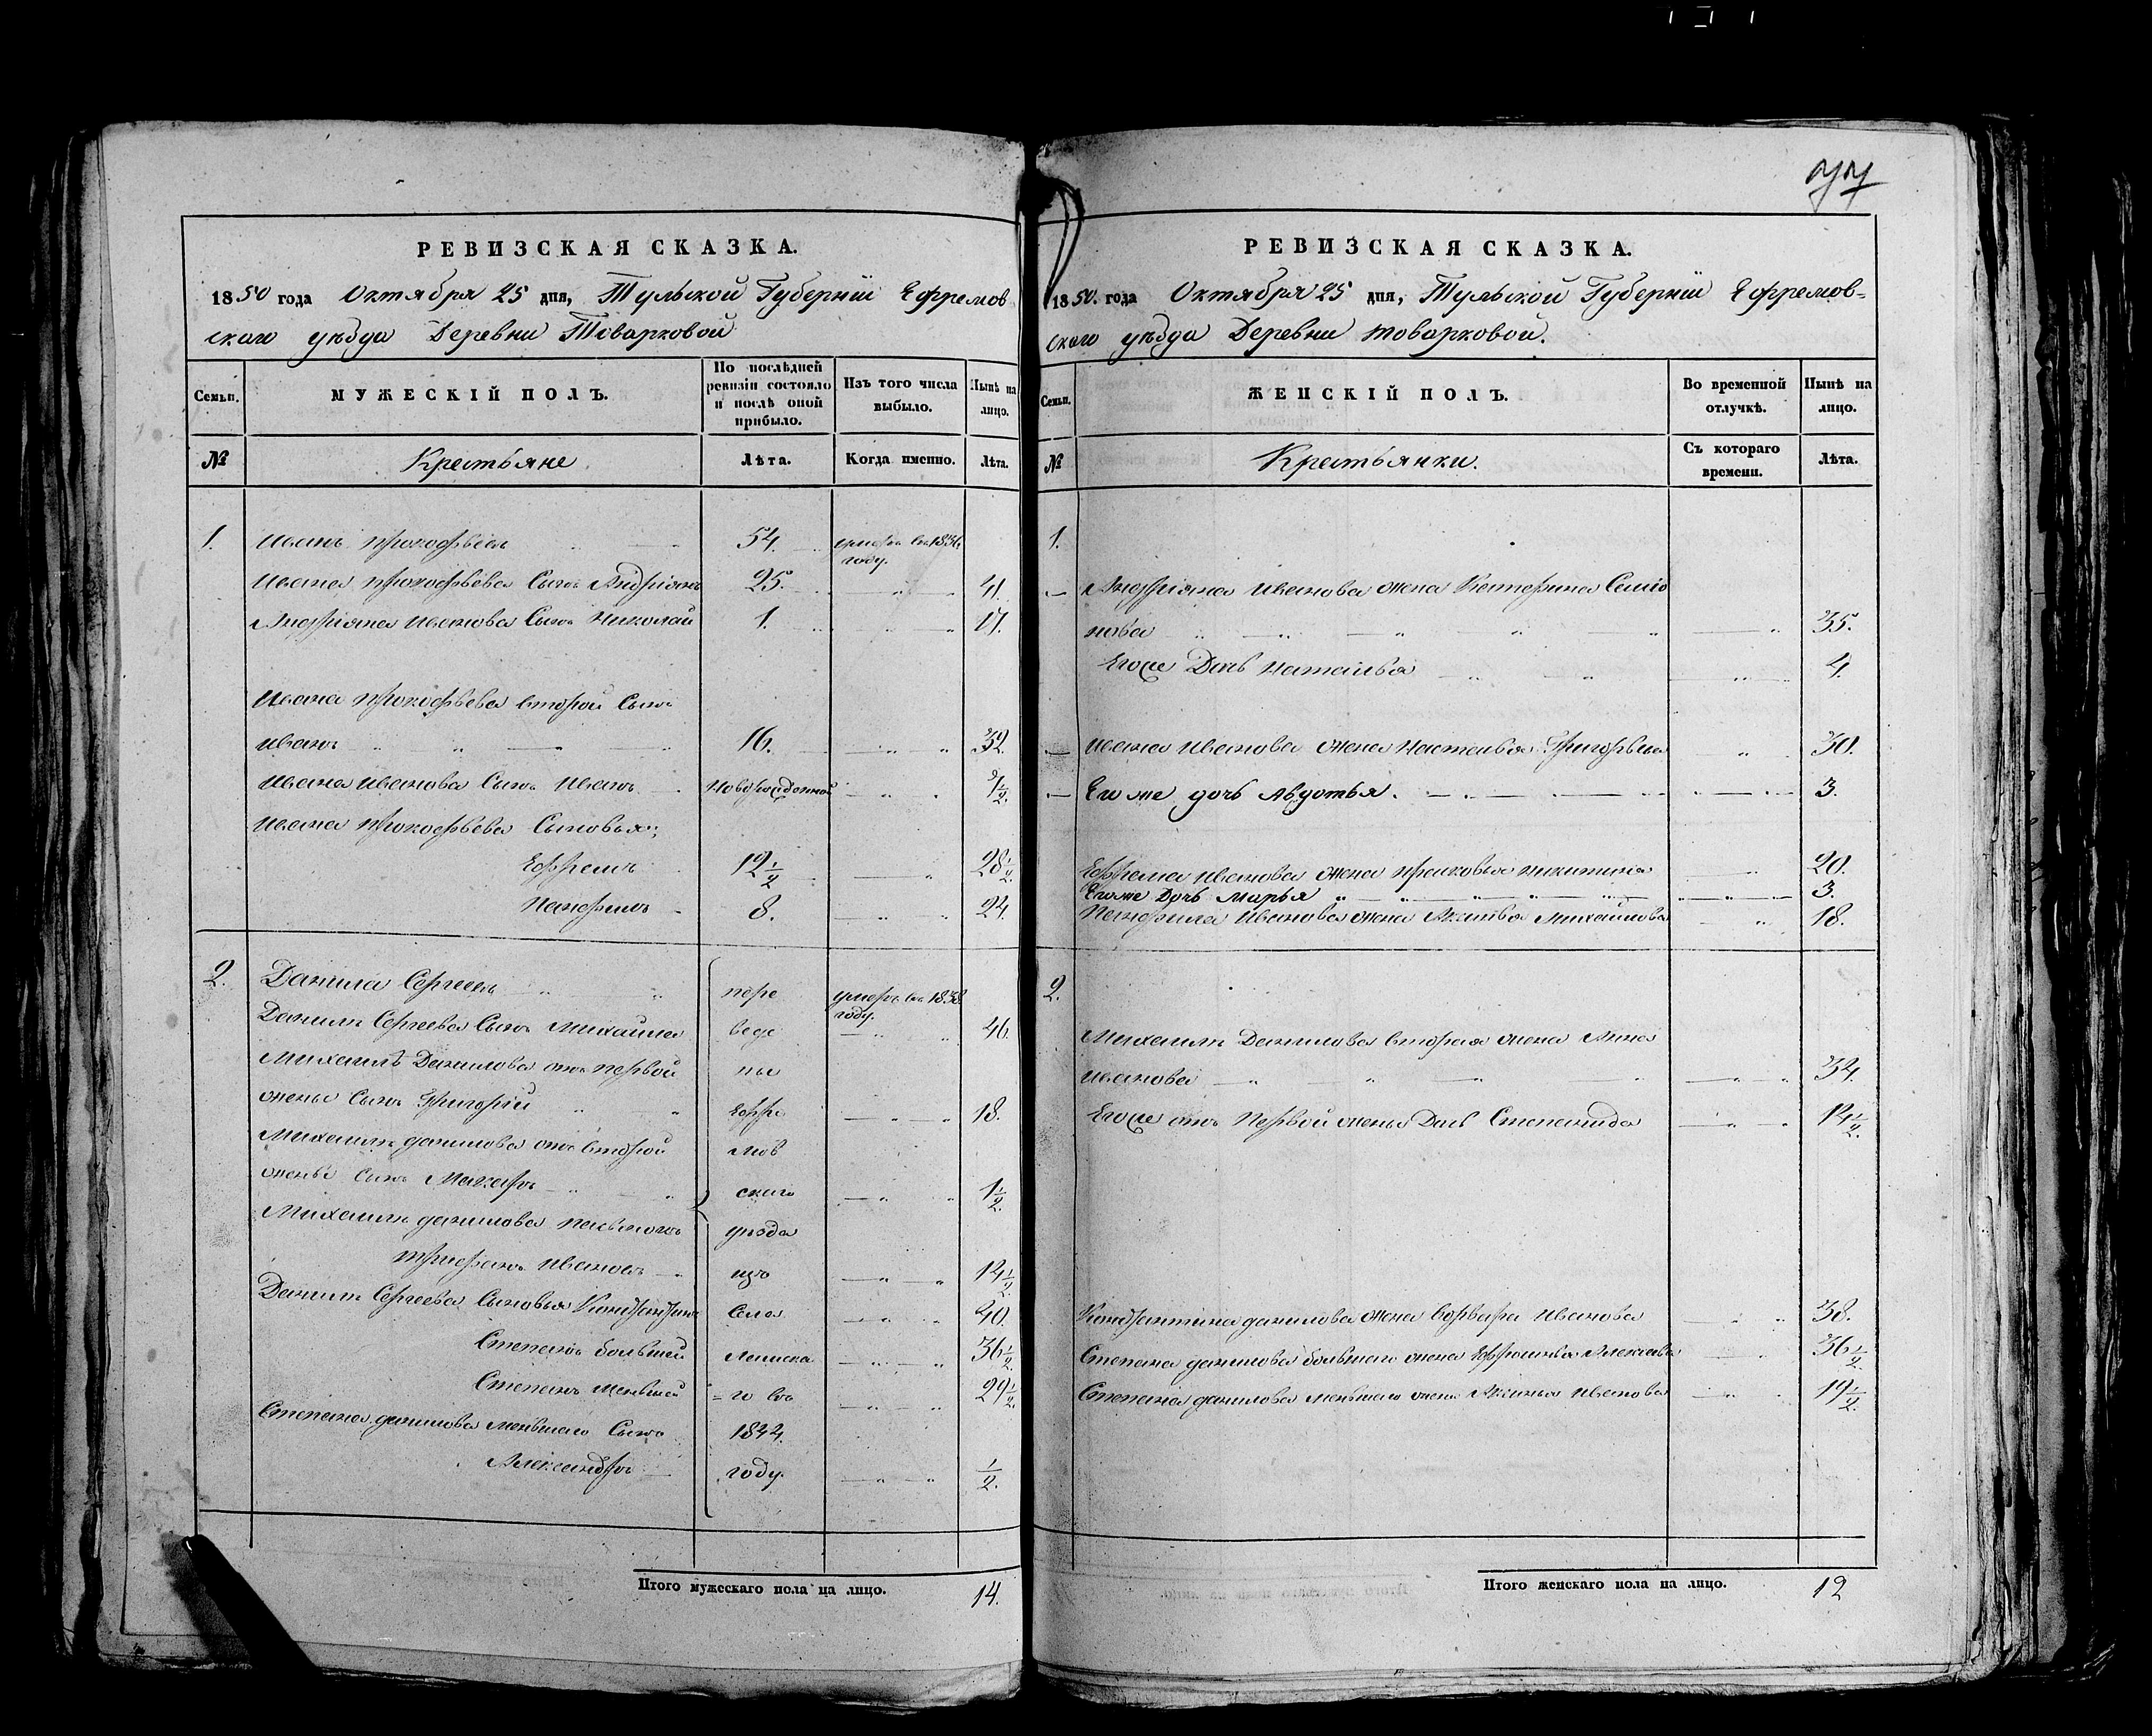 77
РЕВИЗСКАЯ СКАЗКА.
1850 года Октября 25 дня, Тульской Губерніи Ефремов
скаго уѣзда Деревни Товарковой
Семьи.
МУЖЕСКІЙ ПОЛЪ.
По послѣдней
ревизіи состояло
и послѣ оной
прибыло.
Изъ того числа
выбыло.
Нынѣ на
лицо.
№
Крестьяне
Лѣта.
Когда именно.
Лѣта.
1. Иванъ Прокофьевъ 54. умеръ въ 1836.
году.
Ивана Прокофьева Сынъ Андріянъ 25. 41.
Андріяна Иванова Сынъ Николай 1. 17.
Ивана Прокофьева второй Сынъ
Иванъ 16. 32.
Ивана Иванова Сынъ Иванъ новорожденной 1/2.
Ивана Прокофьева Сыновья:
Ефремъ 12 1/2 28 1/2.
Панфилъ 8. 24.
2. Данила Сергеевъ пере умеръ въ 1838.
году.
Данилы Сергеева Сынъ Михайла веде 46.
Михаилы Данилова отъ первой ны
жены Сынъ Григорій Ефре 18.
Михаилы Данилова отъ второй мов
жены Сынъ Макаръ скаго 1 1/2.
Михаилы Данилова пасынокъ уѣзда
Трифанъ Ивановъ изъ 14 1/2.
Данилы Сергеева Сыновья Констянтинъ Села 40.
Степанъ большей 36 1/2.
Степанъ меньшей =го въ 29 1/2.
Степана Данилова меньшаго Сынъ 1844.
Александръ году. 1/2.
Итого мужескаго пола на лицо. 14.
РЕВИЗСКАЯ СКАЗКА.
1850. года Октября 25 дня, Тульской Губерніи Ефремов=
скаго уѣзда Деревни Товарковой.
Семьи.
ЖЕНСКІЙ ПОЛЪ.
Во временной
отлучкѣ.
Нынѣ на
лицо.
№
Крестьянки.
Съ котораго
времени.
Лѣта.
1.
Андріяна Иванова жена Катерина Семіо
нова 35.
Егоже Дочь Наталья 4.
Ивана Иванова жена Наталья Григорьева 30.
Его же дочь Авдотья. 3.
Ефрема Иванова жена Прасковья Никитина 20.
Егоже Дочь Марья 3.
Панфила Иванова жена Михайлова 18.
2.
Михаилы Данилова вторая жена Анна
Иванова 34.
Егоже отъ Первой жены Дочь Степанида 14 1/2.
Констянтина Данилова жена Варвара Иванова 38.
Степана Данилова большаго жена Ефросинья Алексѣева 36 1/2.
Степана Данилова меньшаго жена Аксинья Иванова 19 1/2.
Итого женскаго пола на лицо. 12